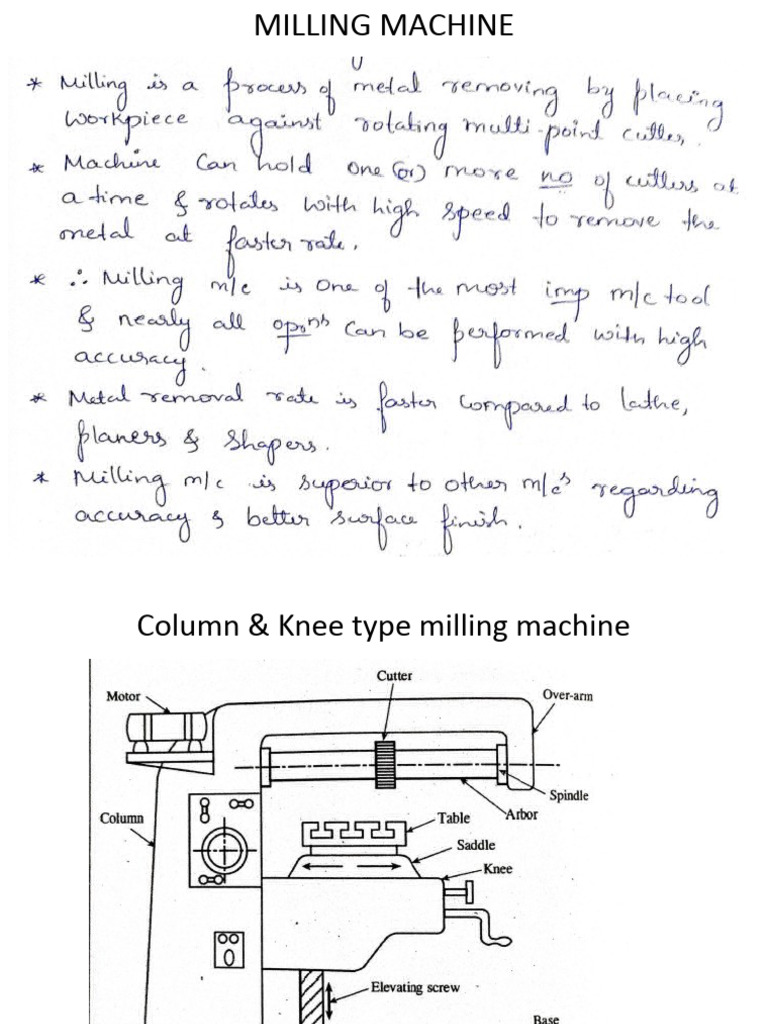 MILLING MACHINE
* Milling is a process of metal removing by placing
workpiece against rotating multi-point cutter.
* Machine can hold one (or) more no of cutters at
a time & rotates with high speed to remove the
metal at faster rate.
* ∴ Milling m/c is one of the most imp m/c tool
& nearly all opons can be performed with high
accuracy.
* Metal removal rate is faster compared to lathe,
planers & shapers.
* Milling m/c is superior to other m/c's regarding
accuracy & better surface finish.
Column & Knee type milling machine
Cutter
Motor
Over-arm
Spindle
Arbor
Column
Table
Saddle
Knee
Elevating screw
Base